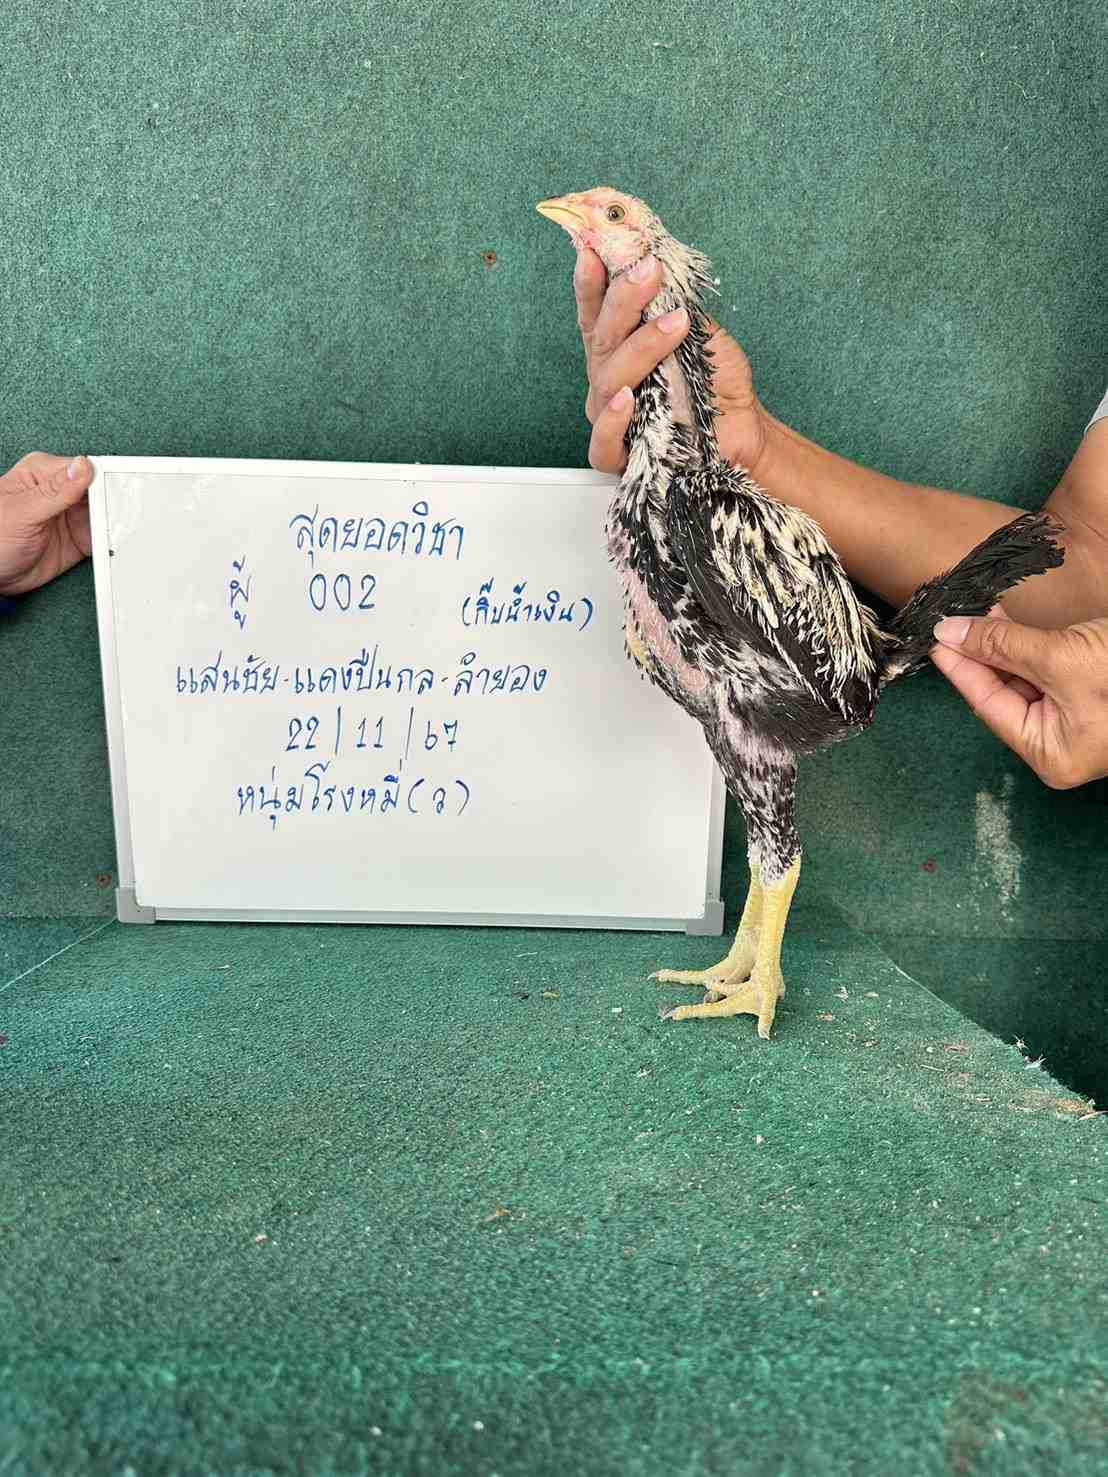 สุดยอดวิชา
ผู้ 002 (กิ๊บน้ำเงิน)
แสนชัย-แดงปืนกล-ลำยอง
22/11/67
หนุ่มโรงหมี่(ว)